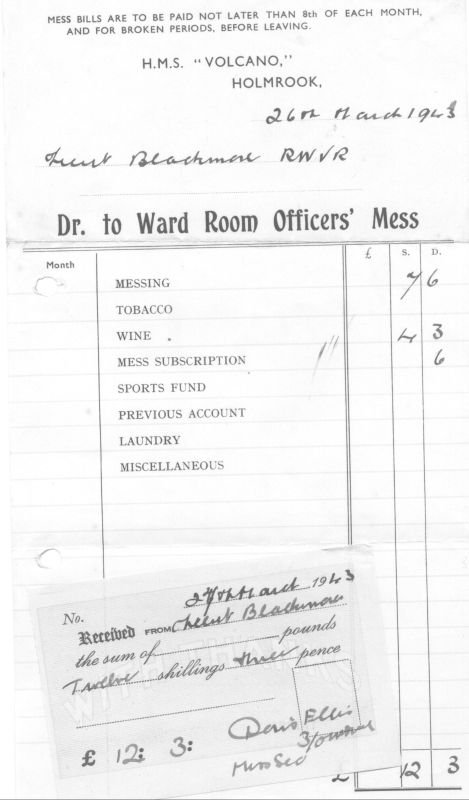 MESS BILLS ARE TO BE PAID NOT LATER THAN 8th OF EACH MONTH,
AND FOR BROKEN PERIODS, BEFORE LEAVING.
H.M.S. "VOLCANO,"
HOLMROOK,
26th March 1943
Lieut Blackmore RNVR
Dr. to Ward Room Officers' Mess
Month £ S. D.
MESSING 7 6
TOBACCO
WINE 4 3
MESS SUBSCRIPTION 6
SPORTS FUND
PREVIOUS ACCOUNT
LAUNDRY
MISCELLANEOUS
27th March 1943
No.
Received FROM Lieut Blackmore
the sum of pounds
Twelve shillings three pence
£ 12: 3:
Doris Ellis
3/O WRNS
Mess Sec
£ 12 3